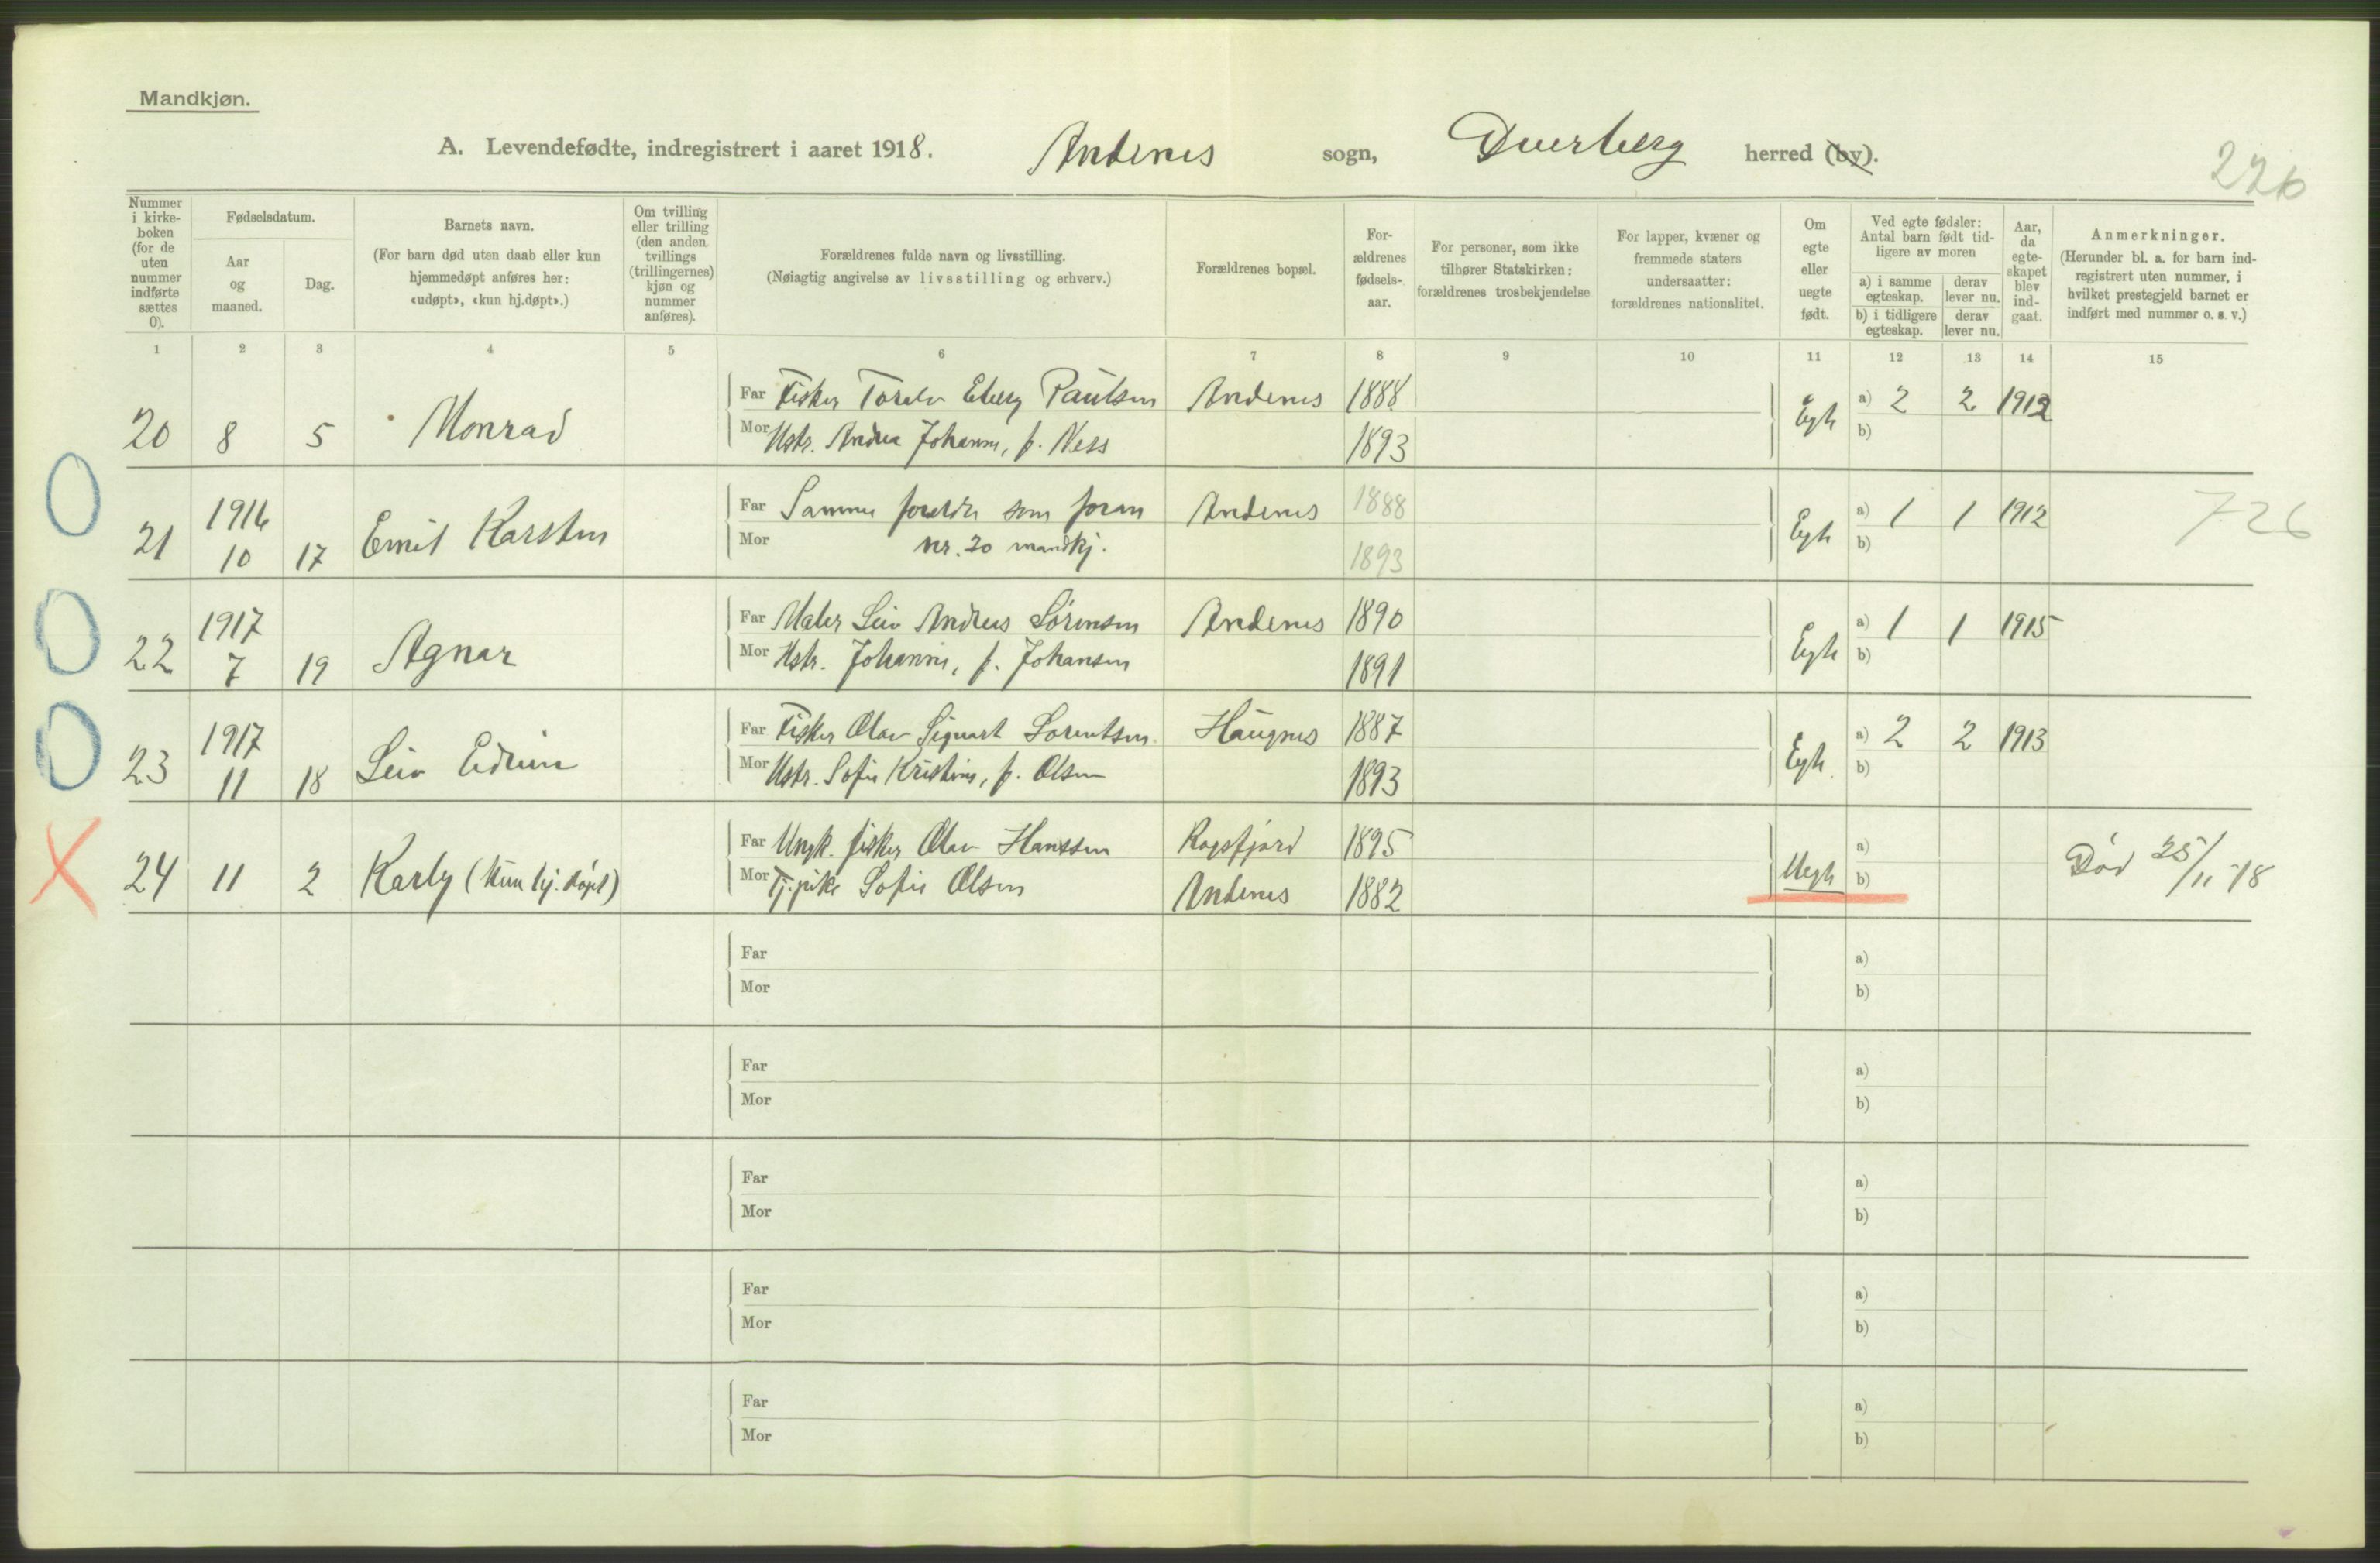 Mandkjøn.
A. Levendefødte, indregistrert i aaret 1918. Andenes sogn, Dverberg herred (by).
226
Nummer i kirkeboken (for de uten nummer indførte sættes 0).
Fødselsdatum.
Aar og maaned.
Dag.
Barnets navn.
(For barn død uten daab eller kun hjemmedøpt anføres her: «udøpt», «kun hj.døpt».)
Om tvilling eller trilling (den anden tvillings (trillingernes) kjøn og nummer anføres).
Forældrenes fulde navn og livsstilling.
(Nøiagtig angivelse av livsstilling og erhverv.)
Forældrenes bopæl.
Forældrenes fødselsaar.
For personer, som ikke tilhører Statskirken: forældrenes trosbekjendelse
For lapper, kvæner og fremmede staters undersaatter: forældrenes nationalitet.
Om egte eller uegte født.
Ved egte fødsler: Antal barn født tidligere av moren
a) i samme egteskap.
derav lever nu.
b) i tidligere egteskap.
derav lever nu.
Aar, da egteskapet blev indgaat.
Anmerkninger.
(Herunder bl. a. for barn indregistrert uten nummer, i hvilket prestegjeld barnet er indført med nummer o. s. v.)
1 2 3 4 5 6 7 8 9 10 11 12 13 14 15
Far Fisker Toralv Eberg Paulsen Andenes 1888 a) 2 2 1912
20 8 5 Monrad Egte
Mor Hstr. Andrea Johanne, f. Ness 1893 b)
1916 Far Samme foreldre som foran Andenes 1888 a) 1 1 1912
21 10 17 Emil Karsten Egte 726
Mor nr. 20 mandkj. 1893 b)
1917 Far Maler Leiv Andreas Sørensen Andenes 1890 a) 1 1 1915
22 7 19 Agnar Egte
Mor Hstr. Johanne, f. Johansen 1891 b)
1917 Far Fisker Olav Sigvart Lorentsen Haugnes 1887 a) 2 2 1913
23 11 18 Leiv Edvin Egte
Mor Hstr. Sofie Kristine, f. Olsen 1893 b)
Far Ungk. fisker Olav Hanssen 1895 a)
24 11 2 Karly (kun hj. døpt) Uegte Død 25/11-18
Mor Tj.pike Sofie Olsen Andenes 1882 b)
Far a)
Mor b)
Far a)
Mor b)
Far a)
Mor b)
Far a)
Mor b)
Far a)
Mor b)